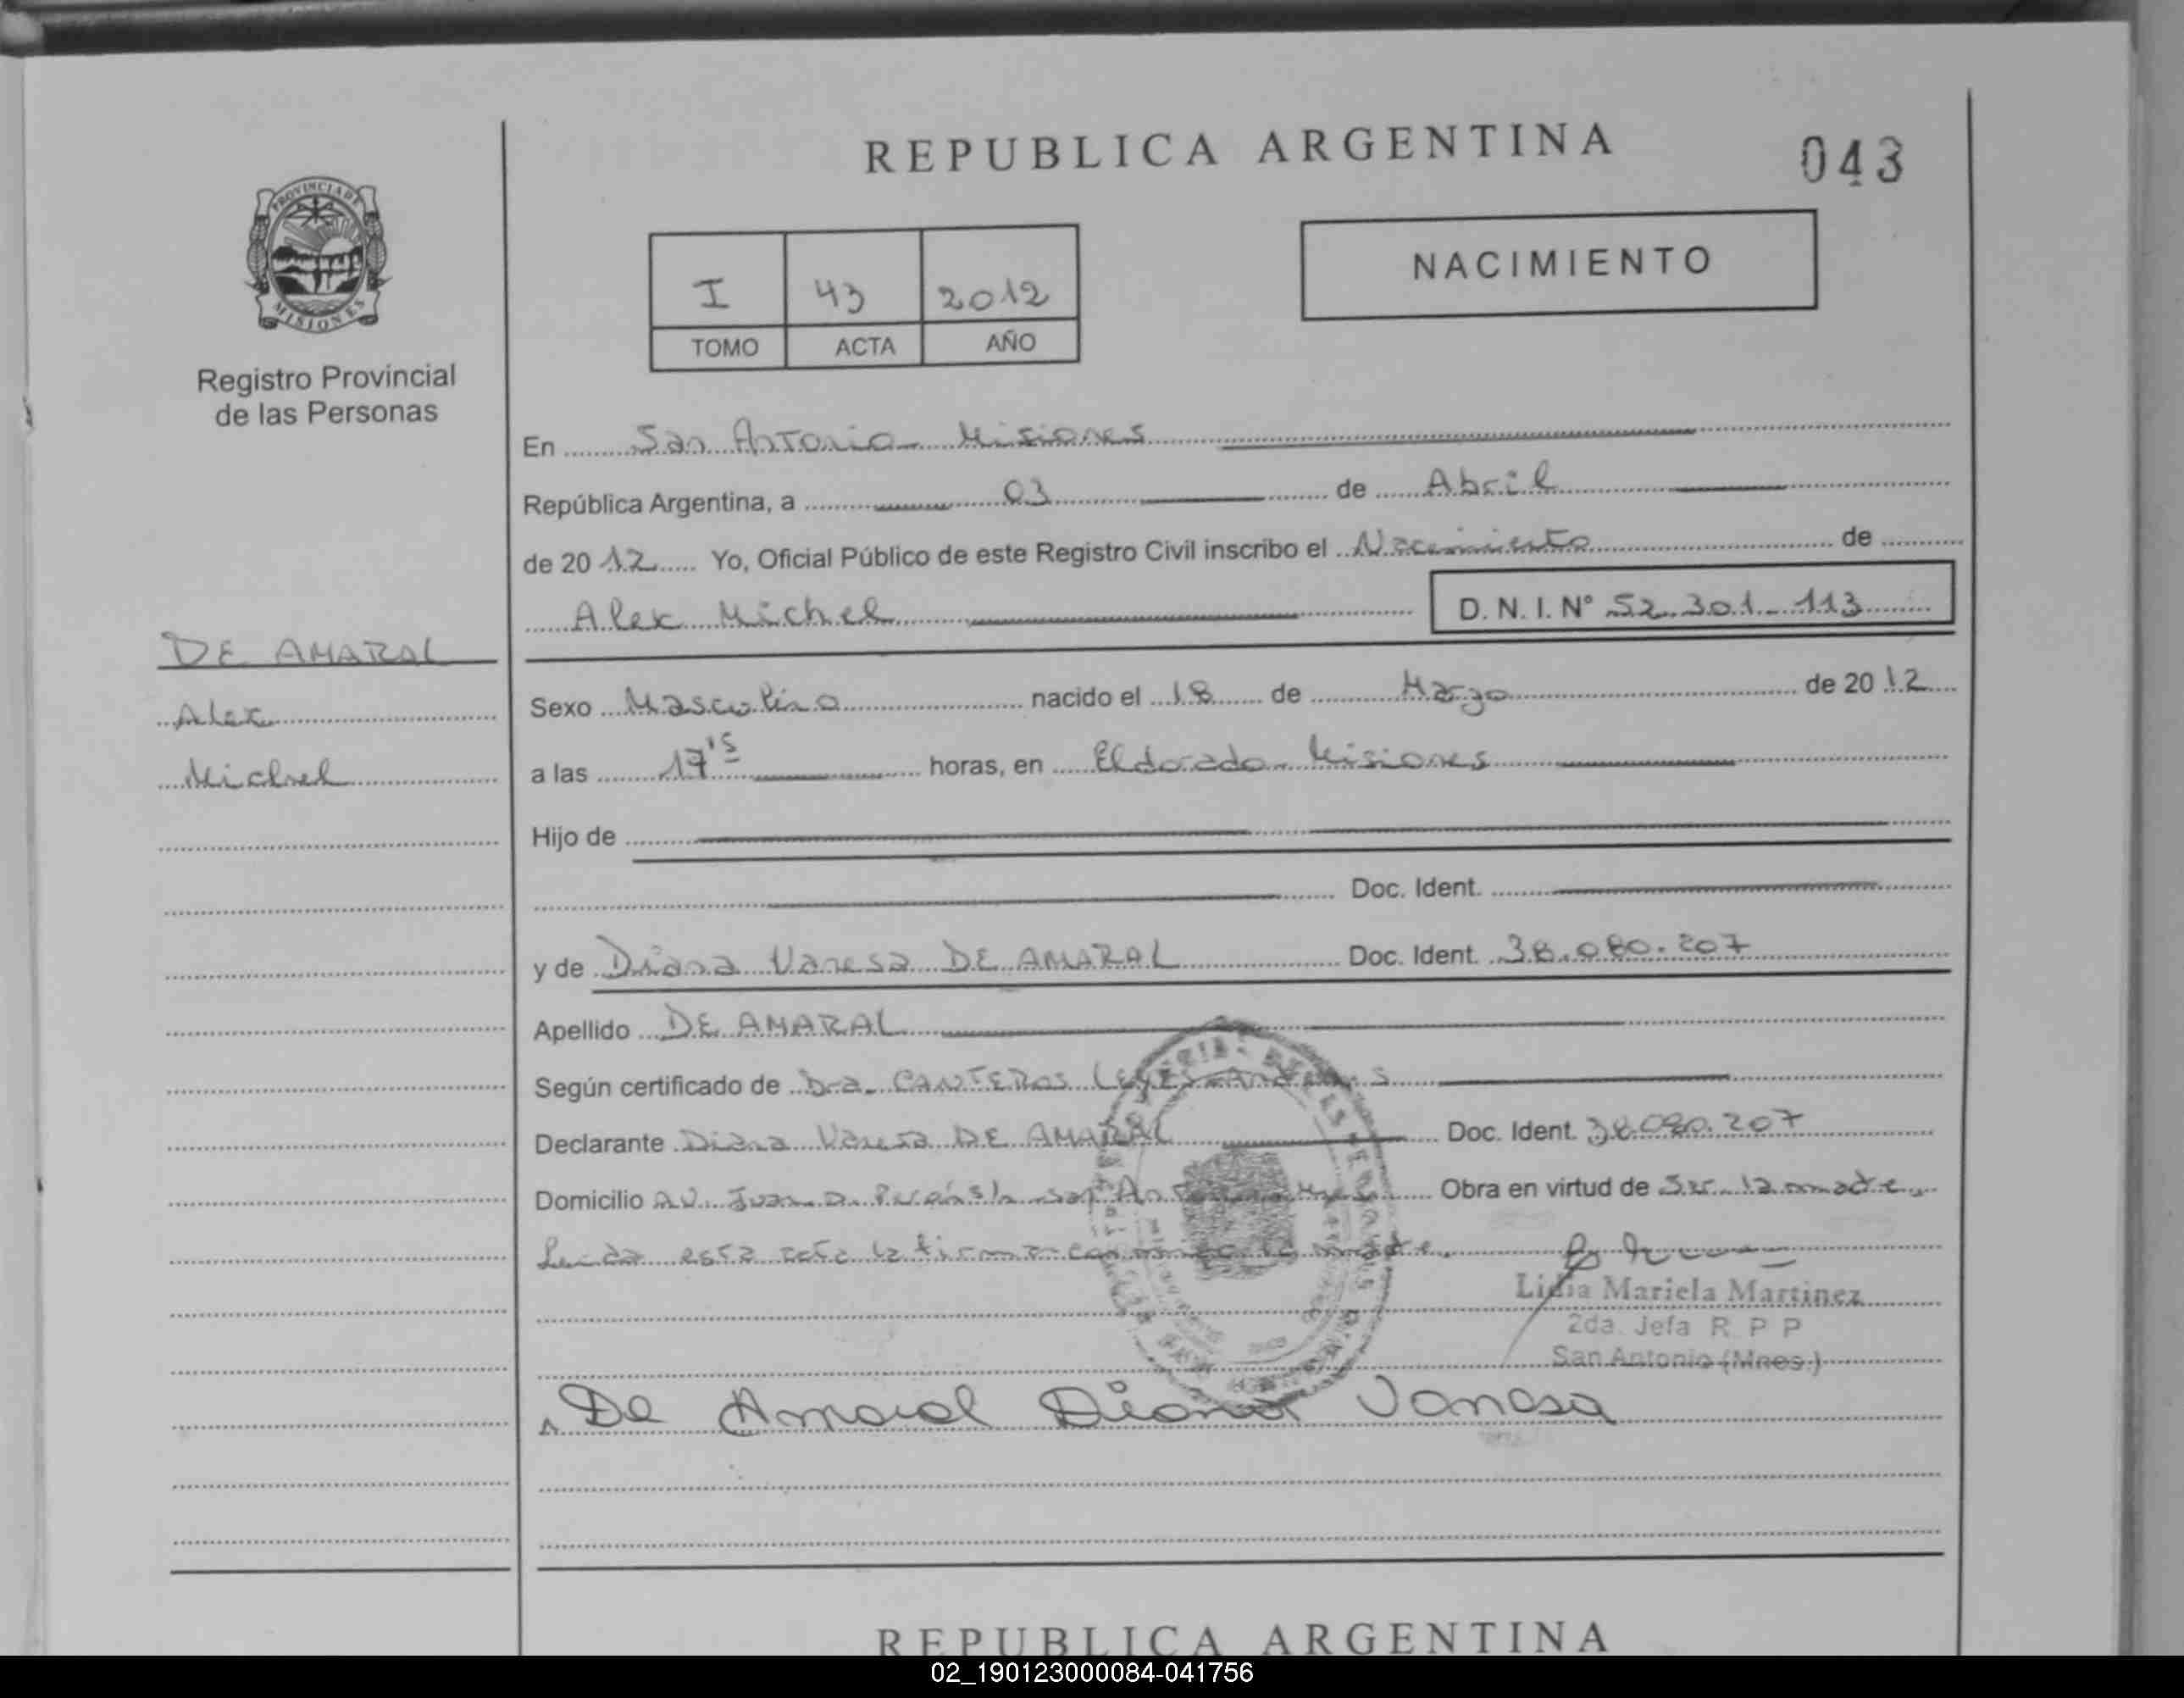 REPUBLICA ARGENTINA
043
PROVINCIA DE
MISIONES
Registro Provincial
de las Personas
NACIMIENTO
I 43 2012
TOMO ACTA AÑO
En San Antonio Misiones
República Argentina, a 03 de Abril
de 20 12 Yo, Oficial Público de este Registro Civil inscribo el Nacimiento de
Alex Michel D. N. I. N° 52.301.113
DE AMARAL
Alex
Michel
Sexo Masculino nacido el 18 de Marzo de 20 12
a las 17'5 horas, en Eldorado Misiones
Hijo de
Doc. Ident.
y de Diana Vanesa DE AMARAL Doc. Ident. 38.080.207
Apellido DE AMARAL
Según certificado de Dra. CANTEROS
Declarante Diana Vanesa DE AMARAL Doc. Ident. 38.080.207
Domicilio AV. Juan D. Perón s/n San Obra en virtud de Ser la madre.
Leida esta acta la firma la madre.
Lidia Mariela Martinez
2da. Jefa R P P
San Antonio (Mnes.)
De Amaral Diana Vanesa
REPUBLICA ARGENTINA
02_190123000084-041756